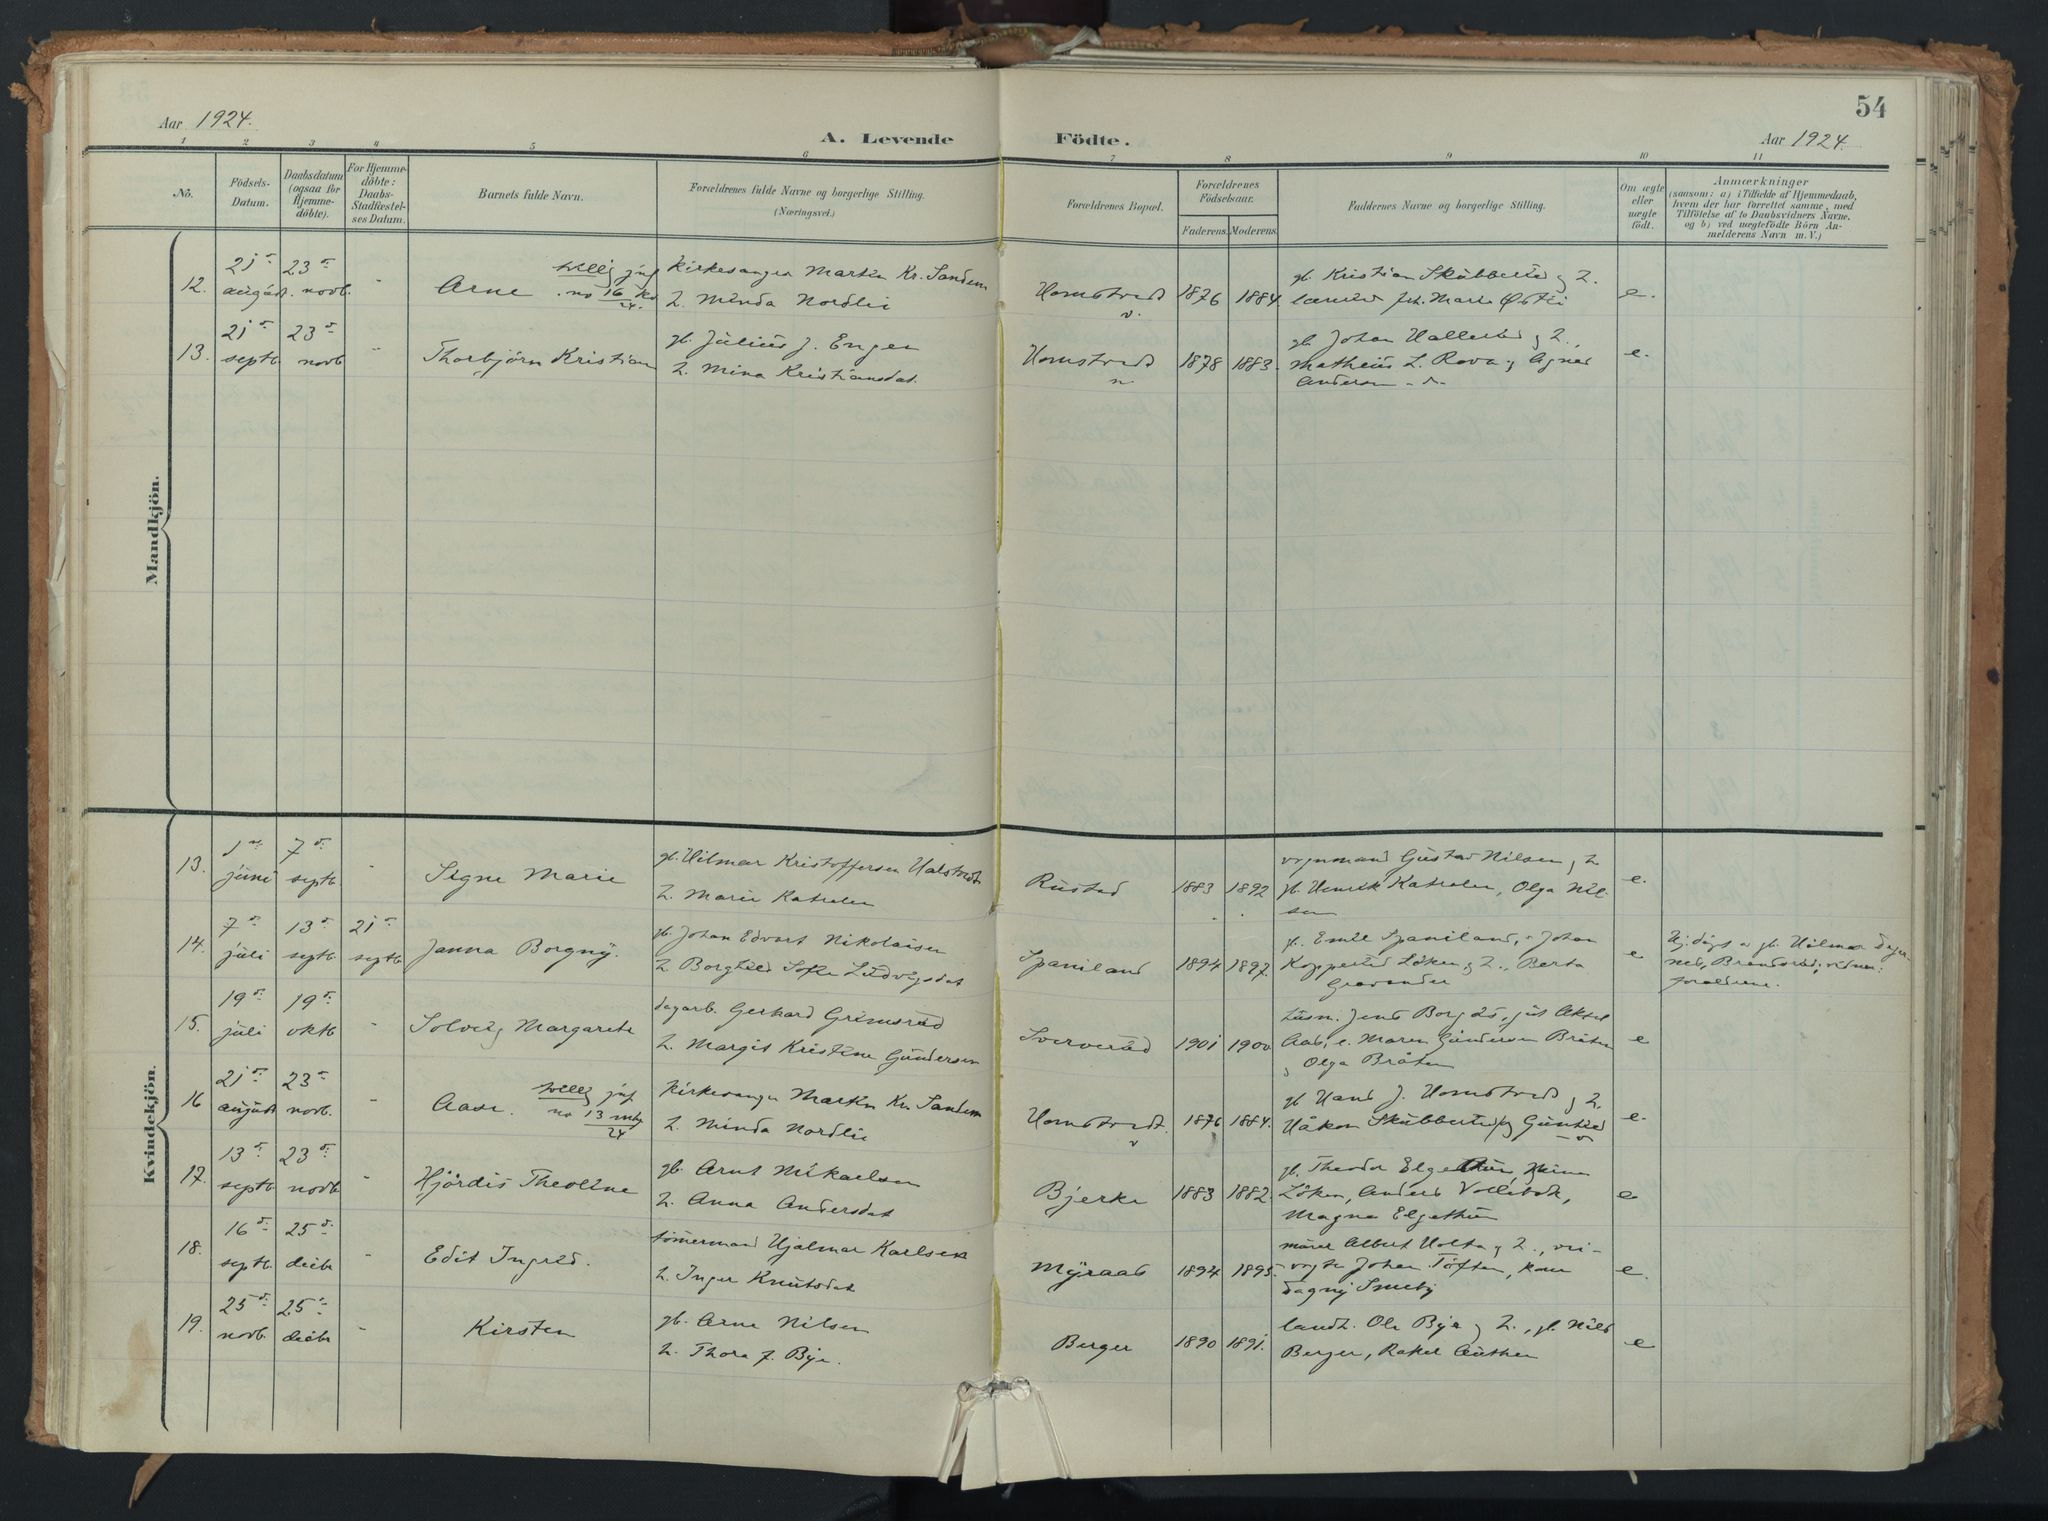 54
Aar 1924.
A. Levende Födte.
Aar 1924.
1 2 3 4 5 6 7 8 9 10 11
Nö.
Födsels-
Datum.
Daabsdatum
(ogsaa for
Hjemme-
döbte).
For Hjemme-
döbte:
Daabs-
Stadfæstel-
ses Datum.
Barnets fulde Navn.
Forældrenes fulde Navne og borgerlige Stilling.
(Næringsvei.)
Forældrenes Bopæl.
Forældrenes
Födselsaar.
Faderens. Moderens.
Faddernes Navne og borgerlige Stilling.
Om ægte
eller
uægte
födt.
Anmærkninger
(saasom: a) i Tilfælde af Hjemmedaab,
hvem der har forrettet samme, med
Tilföielse af to Daabsvidners Navne.
og b) ved uægtefödte Börn An-
melderens Navn m. V.)
Mandkjön.
12. 21 august. 23 novb. " Arne
no 16 kv
24.
Kirkesanger Martin Kr. Sandem
h. Minda Nordlie
Homstvedt
v.
1876 1884.
gb. Kristian Skubberud og h.
e.
13. 21 septb. 23 novb " Thorbjörn Kristian
gb. Julius J. Enger
h. Mina Kristiansdat.
Homstvedt
n.
1878 1883.
gb. Johan Hallerud og h.,
Matheus L. Rova og Agnes
Andersen
e.
Kvindekjön.
13. 1 juni 7 septb. " Signe Marie
gb. Hilmar Kristoffersen Halstvedt
h. Marie Katralen
Rustad
1883 1892
Gustav Nilsen og h
gb. Henrik Katralen, Olga Nil-
sen
e.
14. 7 juli 13 septb 21 septb Janna Borgny.
gb. Johan Edvart Nikolaisen
h. Borghild Sofie Ludvigsdat
Spaniland
1894 1897.
gb. Emil Spaniland, Johan
Kopperud Löken og h., Berta
Gravander
e
Hj. döpt a gb. Hilmar
forældrene.
15. 19 juli 19 oktb " Solveig Margarete
dagarb. Gerhard Grimsrud
h. Margit Kristine Gundersen
Sververud
1901 1900
husm. Jens Borgås,
Maren Gundersen Bråten
og Olga Bråten
e
16 21 august 23 novb. " Aase.
no 13 mk
24
Kirkesanger Martin Kr. Sandem
h. Minda Nordlie
Homstvedt.
v
1876 1884.
gb Hans J. Homstvedt og h.
Håkon Skubberud og Gunhild
e.
17. 13 septb 23 novb " Hjördis Theoline
gb. Arnt Mikaelsen
h. Anna Andersdat
Bjerke
1883 1882.
gb. Theodor Elgethun,
Löken, Anders Vollebæk,
Magna Elgethun
e
18. 16 septb. 25 decbr " Edit Ingrid.
tömermand Hjalmar Karlsen
h. Inger Knutsdat
Myraas
1894 1895.
murer Albert Holta og h., vei-
vogter Johan Töften,
Dagny Smeby
e.
19. 25 novb. 25 decbr " Kirsten
gb. Arne Nilsen
h. Thora J. Bye.
Berger
1890 1891.
landh. Ole Bye og h., gb. Nils
Berger, Rakel Authen
e